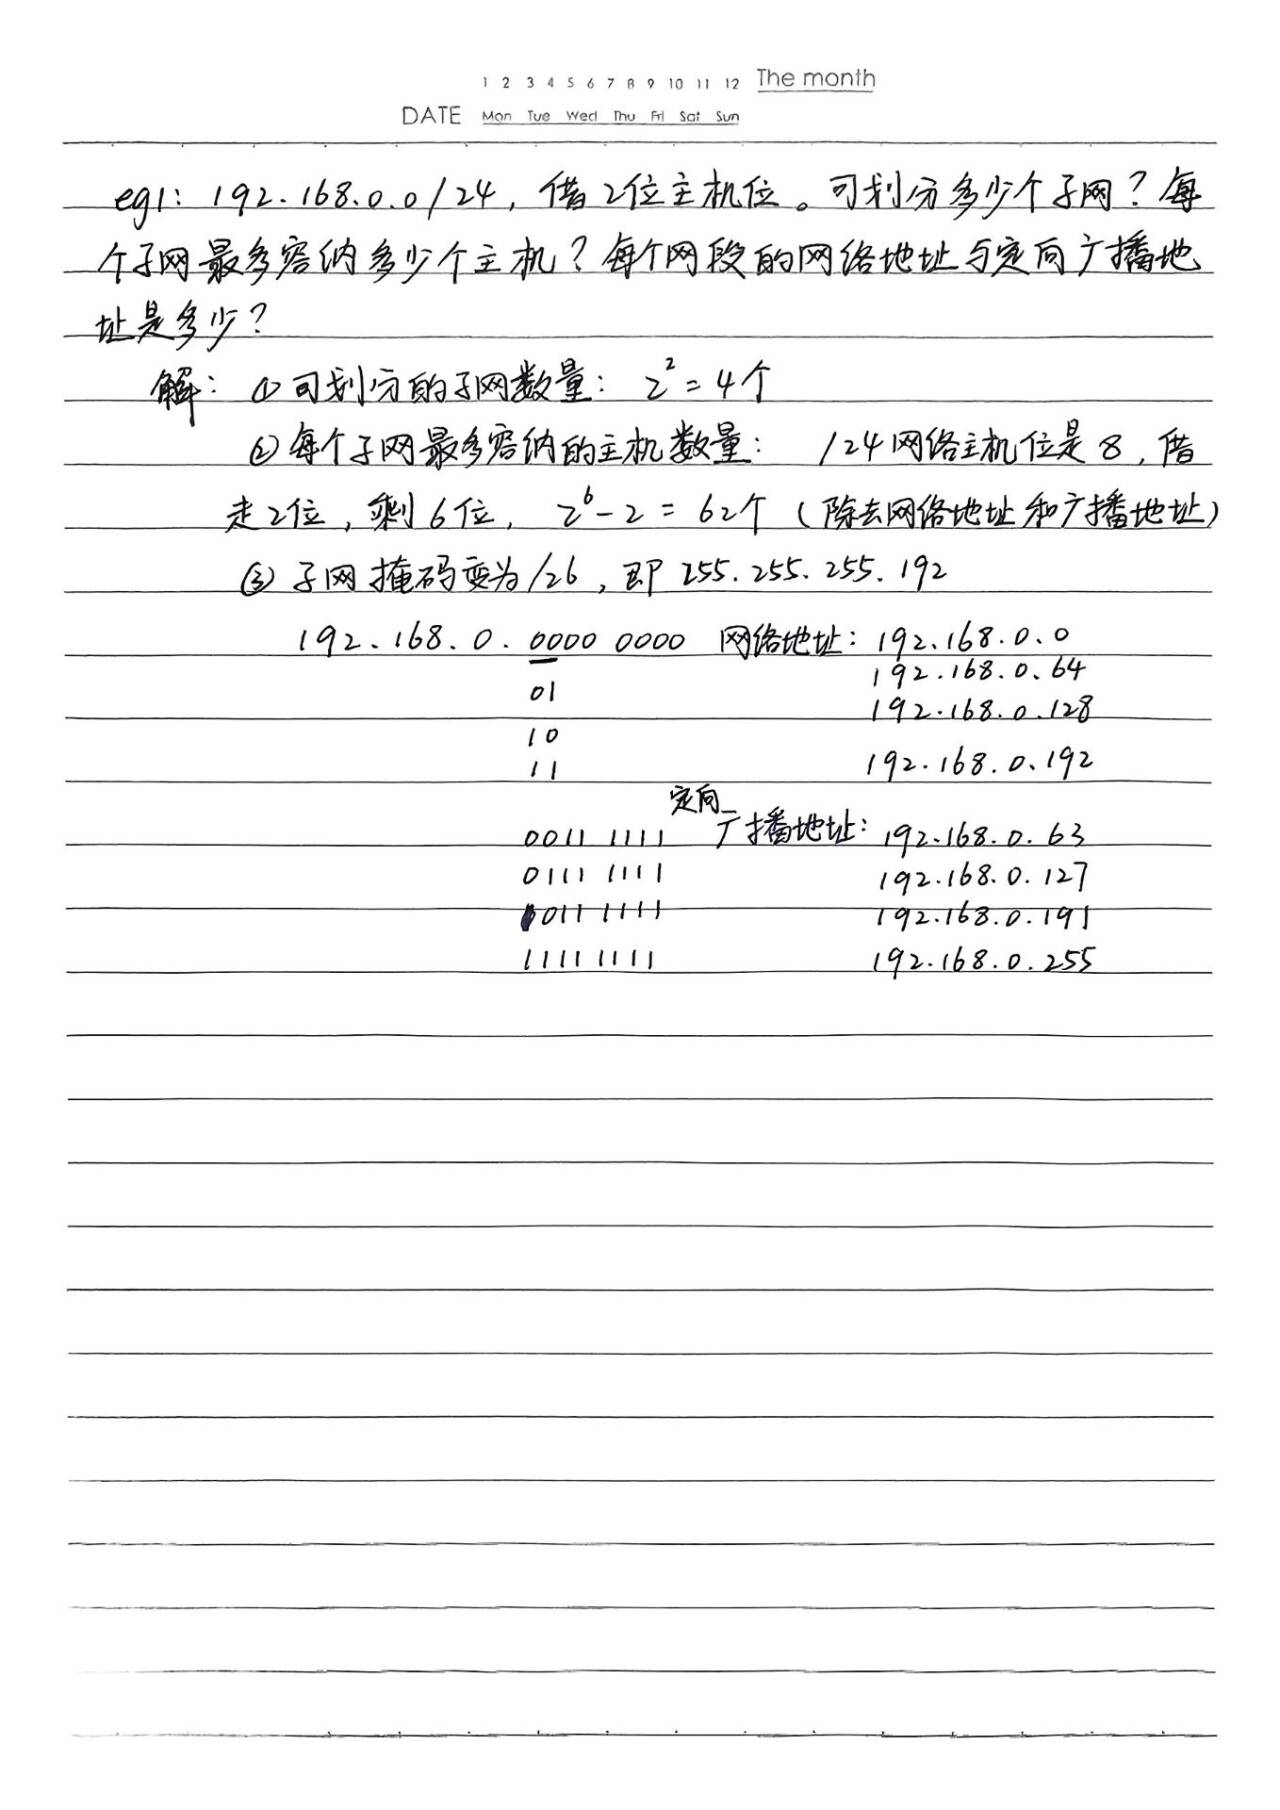 1 2 3 4 5 6 7 8 9 10 11 12 The month
DATE Mon Tue Wed Thu Fri Sat Sun
eg1: 192.168.0.0/24, 借2位主机位。可划分多少个子网？每
个子网最多容纳多少个主机？每个网段的网络地址与定向广播地
址是多少？
解： ① 可划分的子网数量： 2² = 4个
② 每个子网最多容纳的主机数量： /24网络主机位是8, 借
走2位，剩6位， 2⁶-2 = 62个 (除去网络地址和广播地址)
③ 子网掩码变为/26, 即 255.255.255.192
192.168.0.0000 0000 网络地址： 192.168.0.0
192.168.0.64
01
192.168.0.128
10
11 192.168.0.192
定向
0011 1111 广播地址： 192.168.0.63
0111 1111 192.168.0.127
1011 1111 192.168.0.191
1111 1111 192.168.0.255